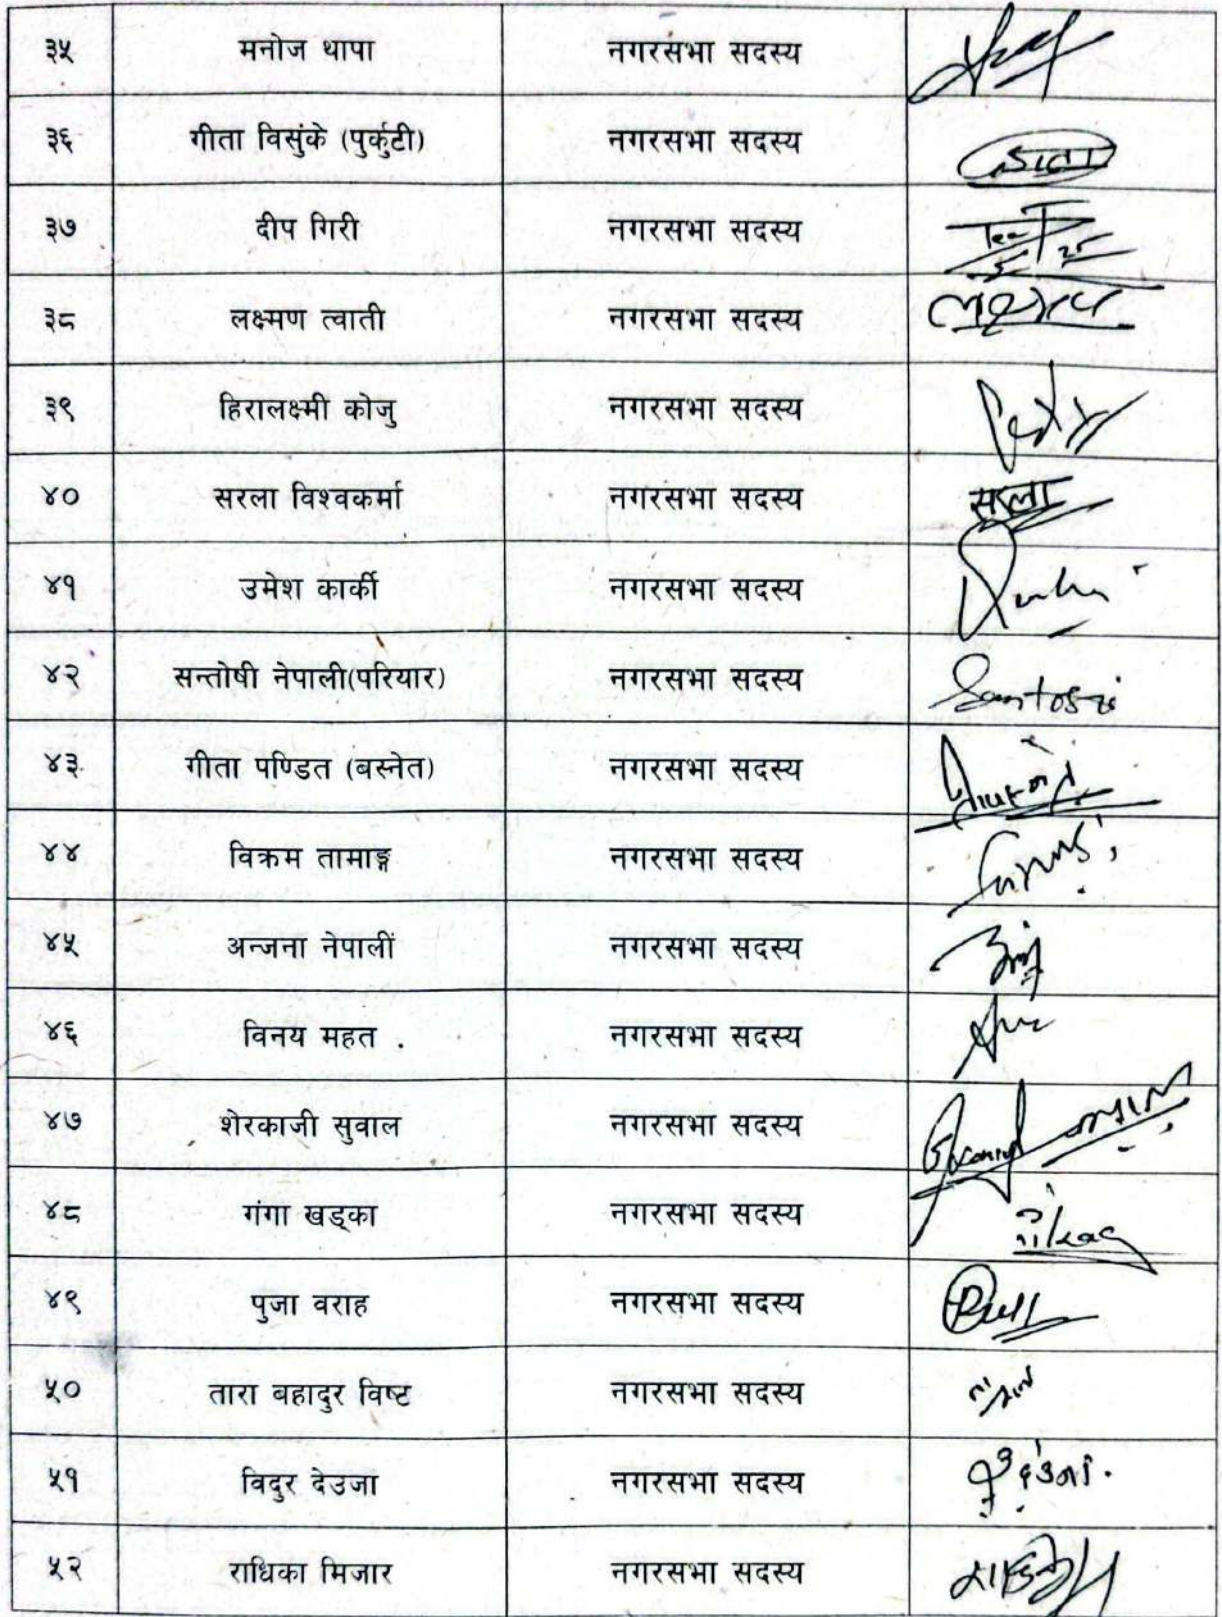 ३५ मनोज थापा नगरसभा सदस्य
३६ गीता विसुंके (पुर्कुटी) नगरसभा सदस्य
३७ दीप गिरी नगरसभा सदस्य
३८ लक्ष्मण त्वाती नगरसभा सदस्य
३९ हिरालक्ष्मी कोजु नगरसभा सदस्य
४० सरला विश्वकर्मा नगरसभा सदस्य सरला
४१ उमेश कार्की नगरसभा सदस्य
४२ सन्तोषी नेपाली(परियार) नगरसभा सदस्य
४३ गीता पण्डित (बस्नेत) नगरसभा सदस्य
४४ विक्रम तामाङ्ग नगरसभा सदस्य
४५ अन्जना नेपालीं नगरसभा सदस्य
४६ विनय महत नगरसभा सदस्य
४७ शेरकाजी सुवाल नगरसभा सदस्य
४८ गंगा खड्का नगरसभा सदस्य
४९ पुजा वराह नगरसभा सदस्य
५० तारा बहादुर विष्ट नगरसभा सदस्य
५१ विदुर देउजा नगरसभा सदस्य
५२ राधिका मिजार नगरसभा सदस्य